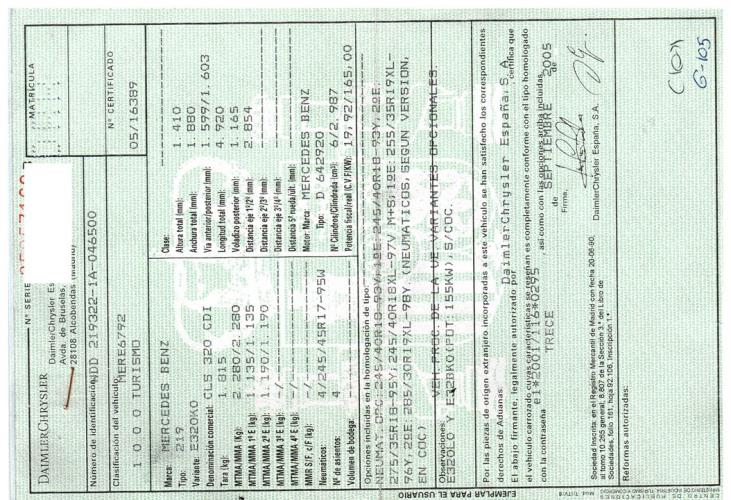 DAIMLERCHRYSLER
Daimler/Chrysler Es
Avda. de Bruselas,
28108 Alcobendas (Madrid)
Nº SERIE
MATRICULA
Nº CERTIFICADO
05/16389
Número de identificación: WDD 219322-1A-046500
Clasificación del vehículo: MERE6792
1 0 0 0 TURISMO
Marca: MERCEDES BENZ
Tipo: 219
Variante: E320K0
Denominación comercial: CLS 320 CDI
Tara (kg): 1.815
MTMA/MMA (Kg): 2.280/2.280
MTMA/MMA 1º E (kg): 1.135/1.135
MTMA/MMA 2º E (kg): 1.190/1.190
MTMA/MMA 3º E (kg): -/-
MTMA/MMA 4º E (kg): -/-
MMR S/F, c/F (kg): -/-
Neumáticos: 4/245/45R17-95W
Nº de asientos: 4
Volumen de bodega:
Clase:
Altura total (mm): 1.410
Anchura total (mm): 1.880
Vía anterior/posterior (mm): 1.599/1.603
Longitud total (mm): 4.920
Voladizo posterior (mm): 1.165
Distancia eje 1º/2º (mm): 2.854
Distancia eje 2º/3º (mm):
Distancia eje 3º/4º (mm):
Distancia 5ª rueda/últ. (mm):
Motor: Marca: MERCEDES BENZ
Tipo: D 642920
Nº Cilindros/Cilindrada (cm³): 6/2.987
Potencia fiscal/real (C.V.F/KW): 19,92/165,00
Opciones incluidas en la homologación de tipo:
NEUMAT.OPC:245/40R18-93Y,1ºE:245/40R18-93Y,2ºE:
275/35R18-95Y;245/40R18XL-97V M+S;1ºE:255/35R19XL-
96Y,2ºE:285/30R19XL-98Y.(NEUMATICOS,SEGUN VERSION,
EN COC)
Observaciones: VEH.PROC.DE LA UE.VARIANTES OPCIONALES:
E320L0 Y E32BK0(POT:155KW),S/COC.
Por las piezas de origen extranjero incorporadas a este vehículo se han satisfecho los correspondientes
derechos de Aduanas.
El abajo firmante, legalmente autorizado por DaimlerChrysler España, S.A., certifica que
el vehículo carrozado cuyas características se reseñan es completamente conforme con el tipo homologado
con la contraseña E1*2001/116*0295, así como con las opciones arriba incluidas.
TRECE de SEPTIEMBRE de 2005
Firma,
DaimlerChrysler España, S.A.
Sociedad Inscrita: en el Registro Mercantil de Madrid con fecha 20-06-90,
al tomo 10.265 general, 8.807 de la Sección 3ª del Libro de
Sociedades, folio 161, hoja 92.106, Inscripción 1ª
Reformas autorizadas:
EJEMPLAR PARA EL USUARIO
G-105